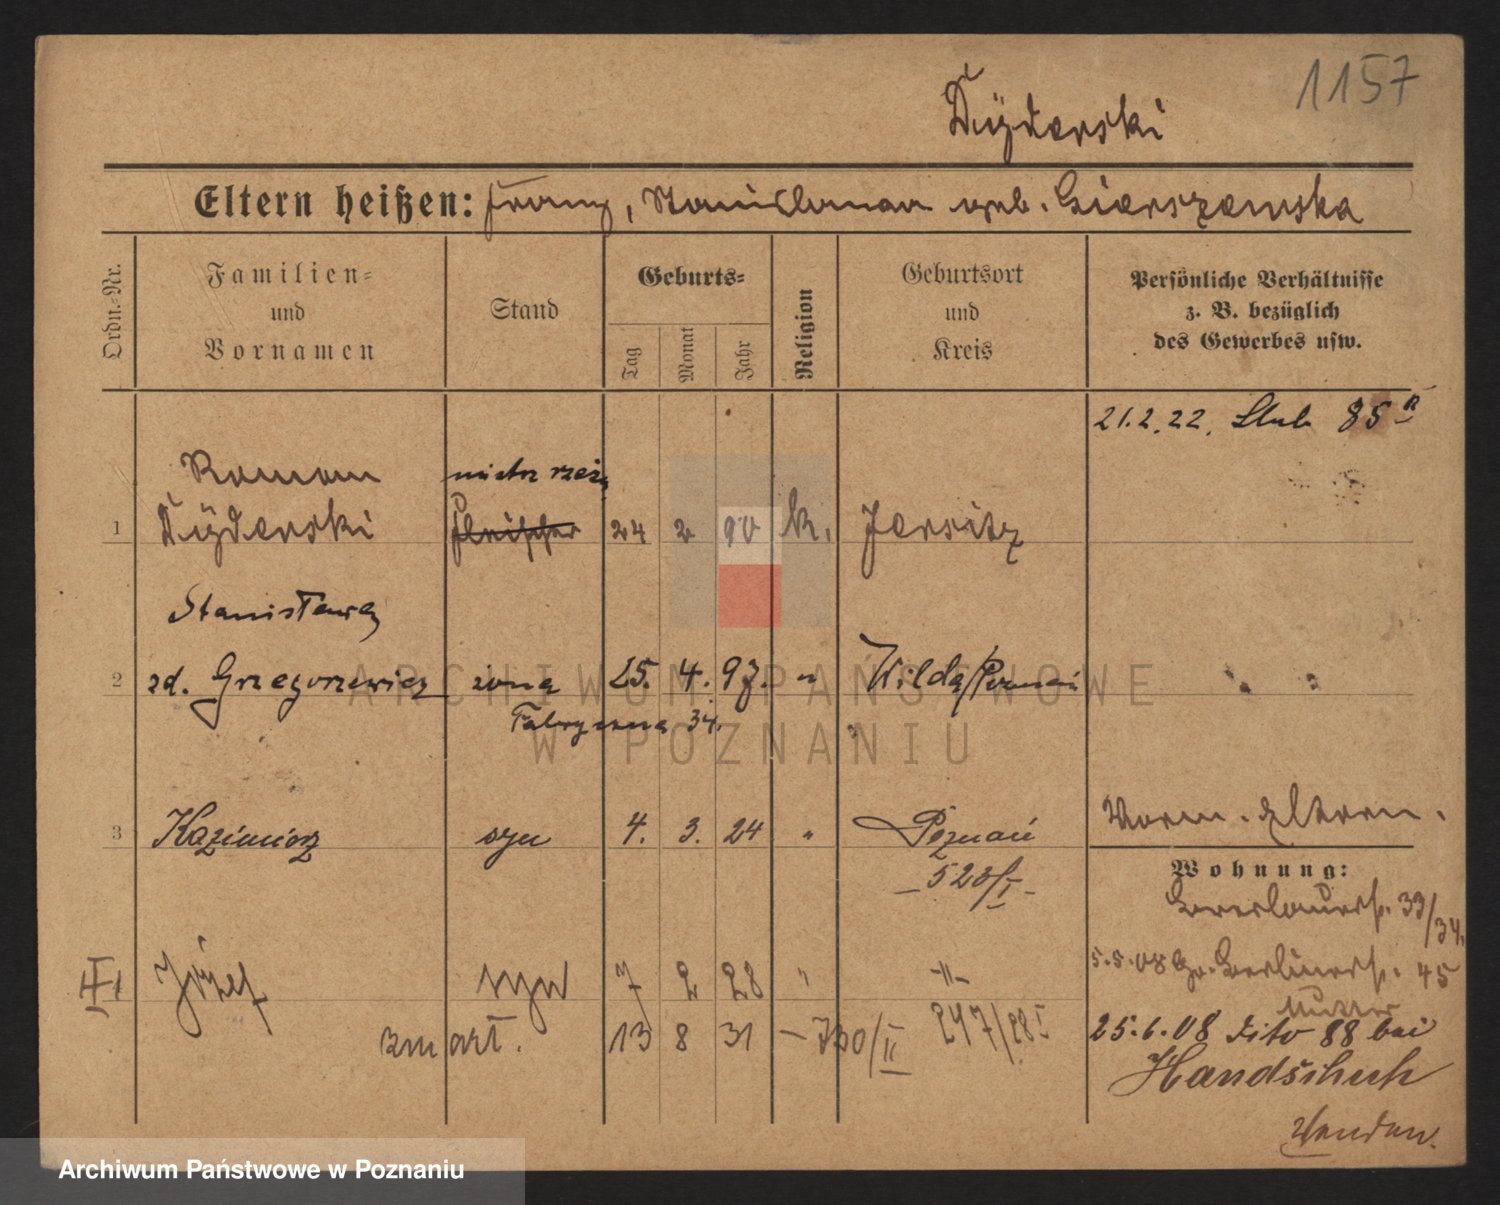 1157
Dÿderski
Eltern heißen: Franz, Stanislawa geb. Gierszewska
Ordn.-Nr.
Familien-
und
Vornamen
Stand
Geburts-
Tag
Monat
Jahr
Religion
Geburtsort
und
Kreis
Persönliche Verhältnisse
z. B. bezüglich
des Gewerbes usw.
21.2.22. Ślub 85 II
Roman mistrz rzeź.
1 Dÿderski Fleischer 24 2 90 k. Jersitz
Stanisława
2 zd. Grzegorzewicz żona 25. 4. 97. " Wilda/Poznań
Fabryczna 34.
3 Kazimierz syn 4. 3. 24 " Poznań
523/I
Vorm. Eltern.
Wohnung:
33/34.
Józef syn 7 2 28 " -"-
5.5.08 Gr. Berlinerst. 45
247/28 I
zm art. 13 8 31 - 730/II
Mutter
25.6.08 dito 88 bei
Handschuh
Wenden.
ARCHIWUM PAŃSTWOWE
W POZNANIU
Archiwum Państwowe w Poznaniu